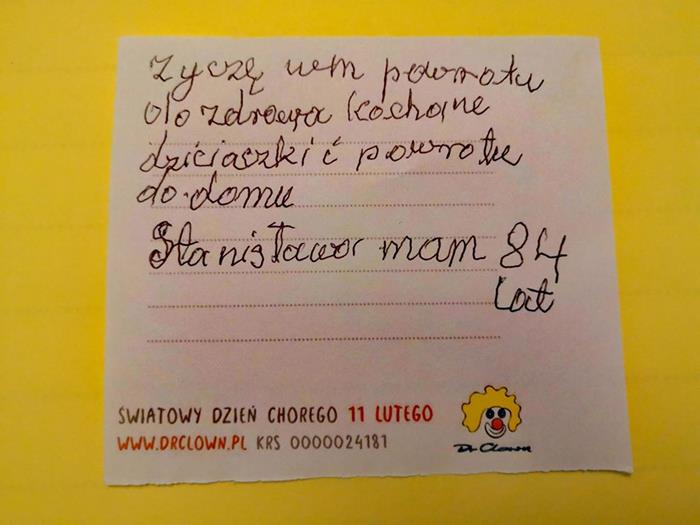 życzę wam powrotu
do zdrowia kochane
dzieciaczki i powrotu
do domu
Stanisława mam 84
Lat
ŚWIATOWY DZIEŃ CHOREGO 11 LUTEGO
WWW.DRCLOWN.PL KRS 0000024181
Dr Clown